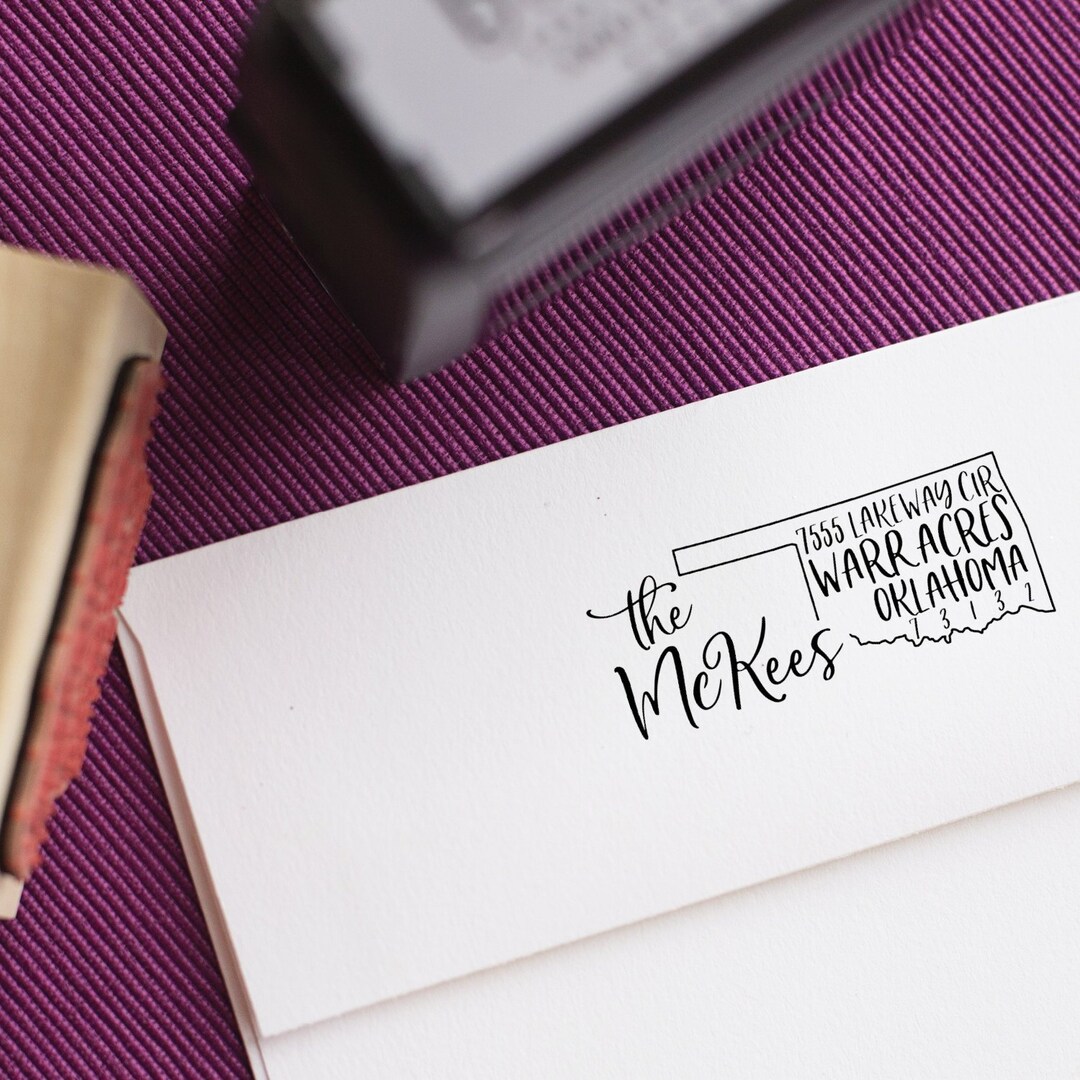 the
McKees
7555 LAKEWAY CIR
WARR ACRES
OKLAHOMA
73132